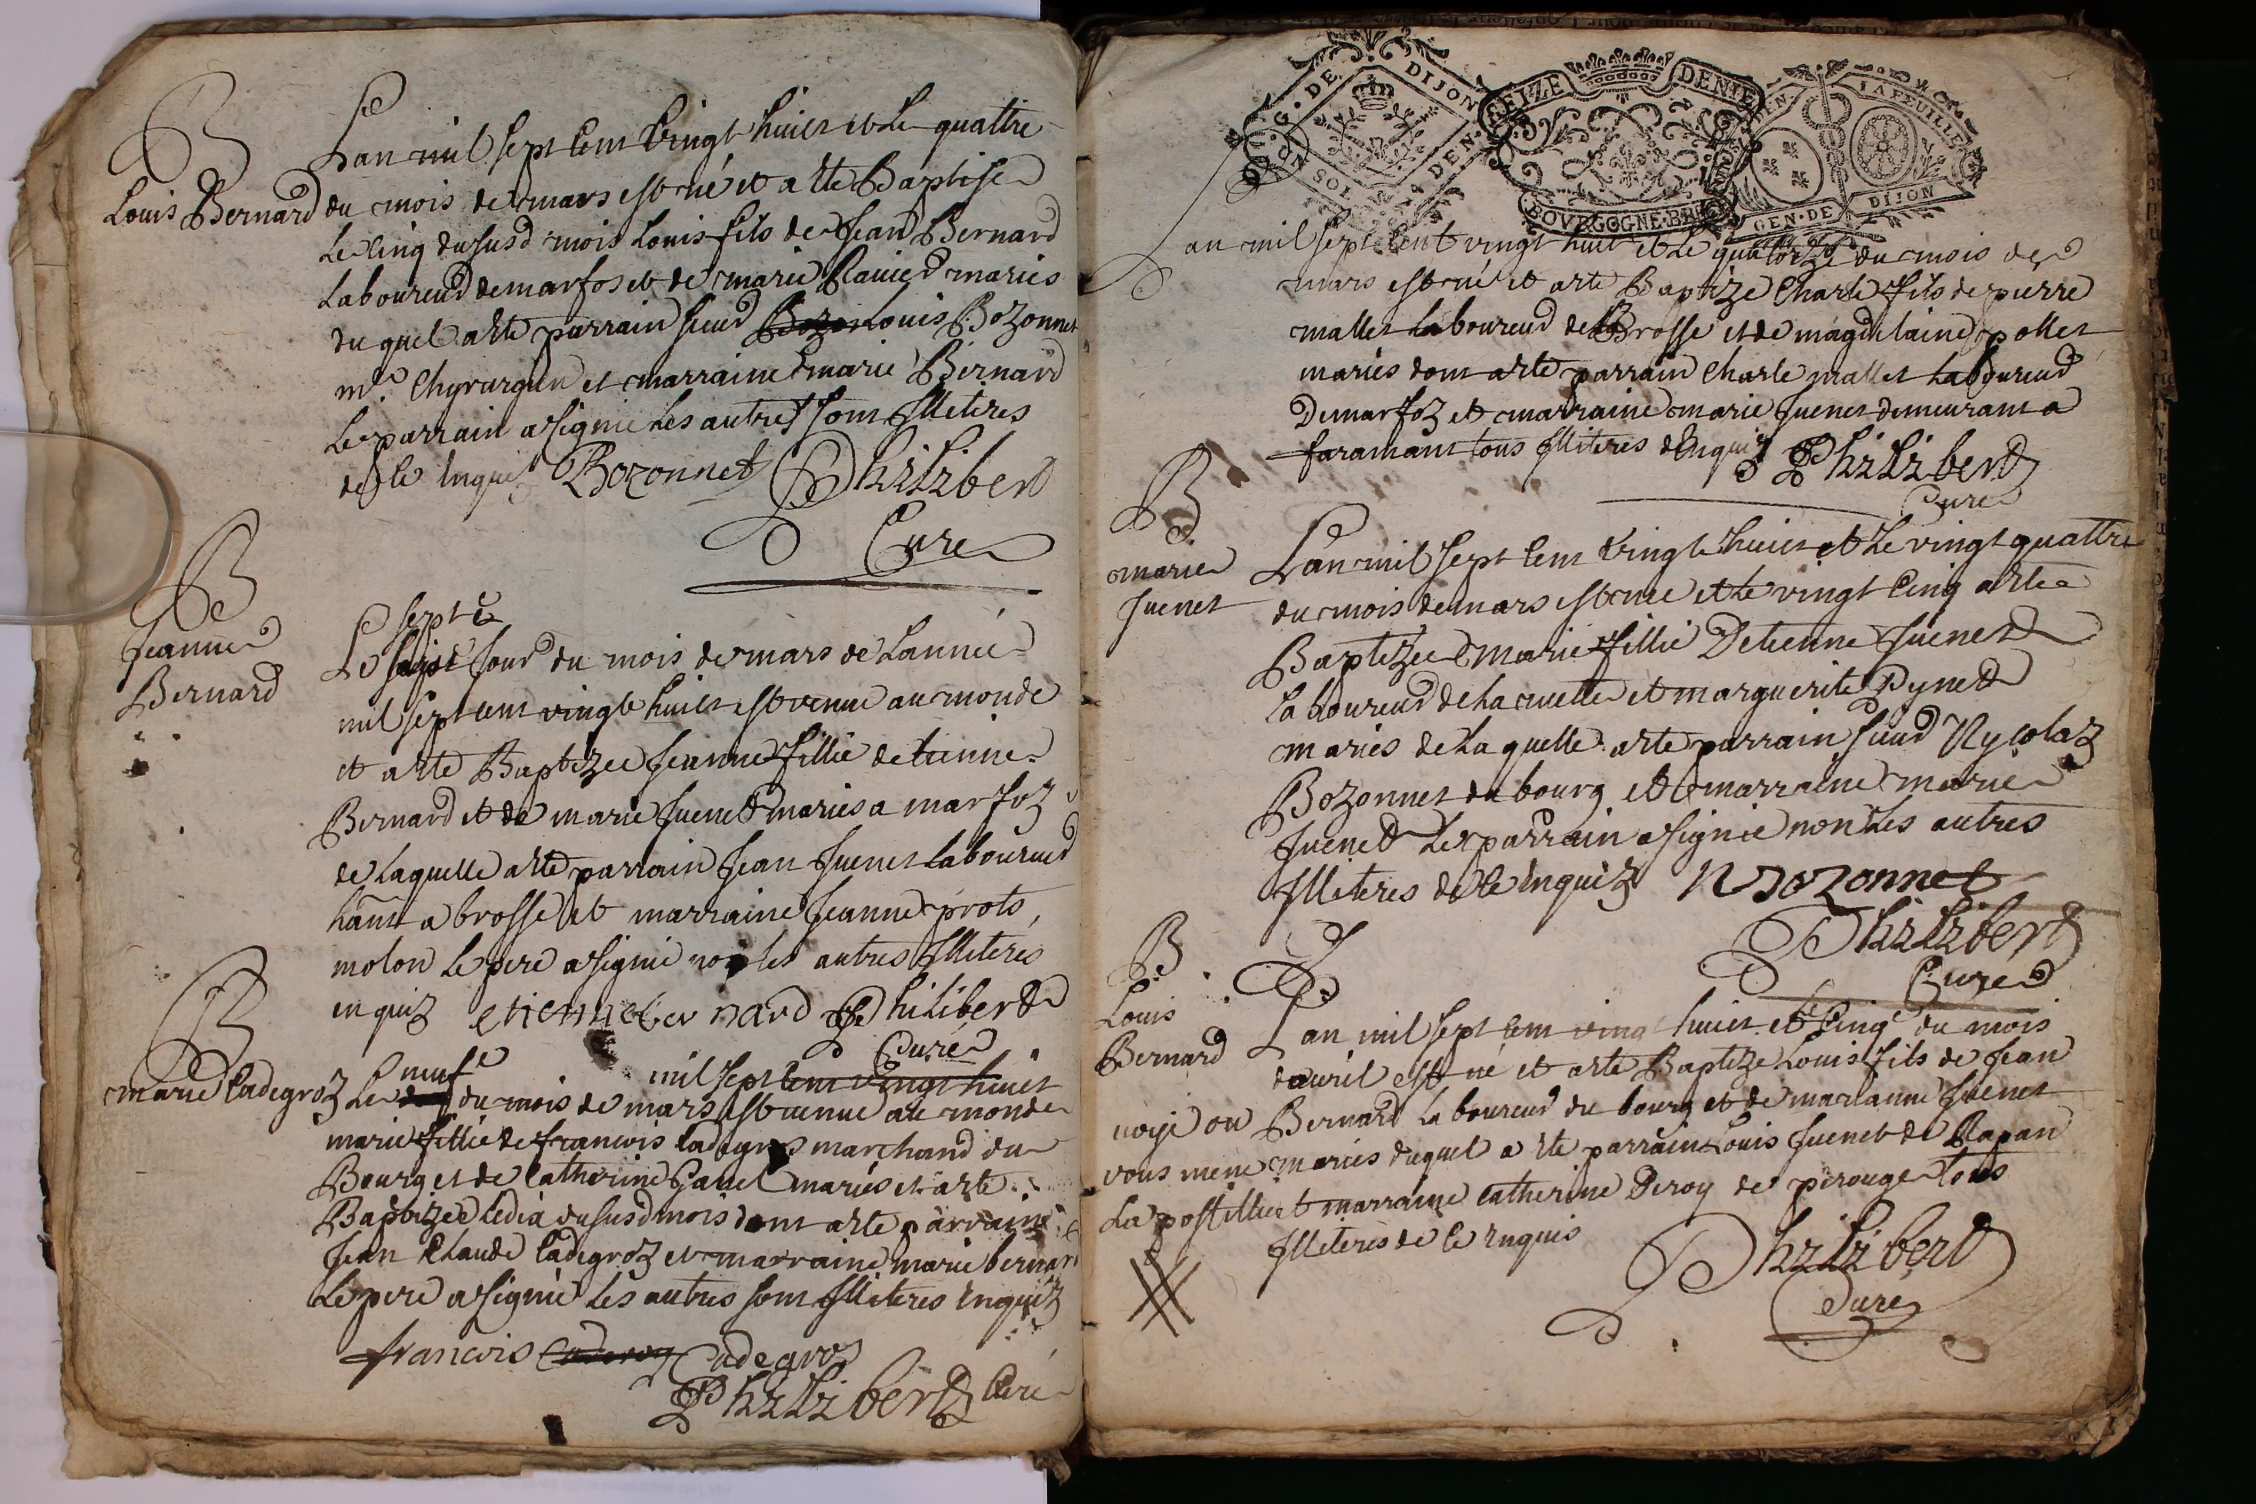 B
Louis Bernard
Lan mil sept cent vingt huict et le quattre
du mois de mars est né et a ete Baptise
le cinq du susd mois Louis fils de Jean Bernard
laboureur de marfos et de marie Ravier mariés
duquel a ete parrain sieur Bozon Louis Bozonnet
mre Chyrurgien et marraine marie Bernard
le parrain a signie les autres sont Illiteres
de ce enquis Bozonnet Philibert
Curé
B
Jeanne
Bernard
septe
Le jour du mois de mars de Lannee
mil sept cent vingt huict est venue au monde
et a ete Baptizee Jeanne fillie detienne
Bernard et de marie Juenet mariés a marfoz
de laquelle a ete parrain Jean Juenet laboureur
hant a brosse et marraine Jeanne prots,
molon le pere a signié non les autres Illiteres
enquis etienne bernard Philibert
Curé
B
marie Cadegroz
neufe mil sept cent vingt huict
Le du mois de mars est venue au monde
marie fillie de francois Cadegros marchand du
Bourg et de Catherine Gavet mariés et a ete
Baptizee le dix du susd mois dont a ete parrain
Jean Claude Cadegroz et marraine marie bernard
Le pere a signié les autres sont Illiteres enquis
francois Cadegros
Philibert Curé
G. DE DIJON
SOL DEN.
SEIZE DENIE
BOURGOGNE. BR
DEN. LA FEUILLE
GEN. DE DIJON
Lan mil sept cent vingt huict et le quatorze du mois de
mars est né et a ete Baptize Charle fils de pierre
mallet laboureur de Brosse et de magdelaine pollet
mariés dont a ete parrain Charle mallet laboureur
De marfoz et marraine marie Juenet demeurant a
faramant tous Illiteres enquis Philibert
Curé
B
marie
Juenet
Lan mil sept cent vingt huict et le vingt quattre
du mois de mars est née et le vingt cinq a ete
Baptizee marie fillie Detienne Juenet
laboureur de la ruette et marguerite Pynet
mariés de laquelle a ete parrain sieur Nycolaz
Bozonnet du bourg et marraine marie
Juenet Le parrain a signié non les autres
Illiteres de ce enquis N Bozonnet
Philibert
Curé
B
Louis
Bernard
Lan mil sept cent vingt huict et le Cinq du mois
davril est né et a ete Baptize Louis fils de Jean
Bernard laboureur du bourg et de marianne Juenet
mariés duquel a ete parrain Louis Juenet de Rapan
et marraine Catherine Deroy de perouge tous
Illiteres de ce enquis Philibert
Curé
voye ou
vous mene
La postille